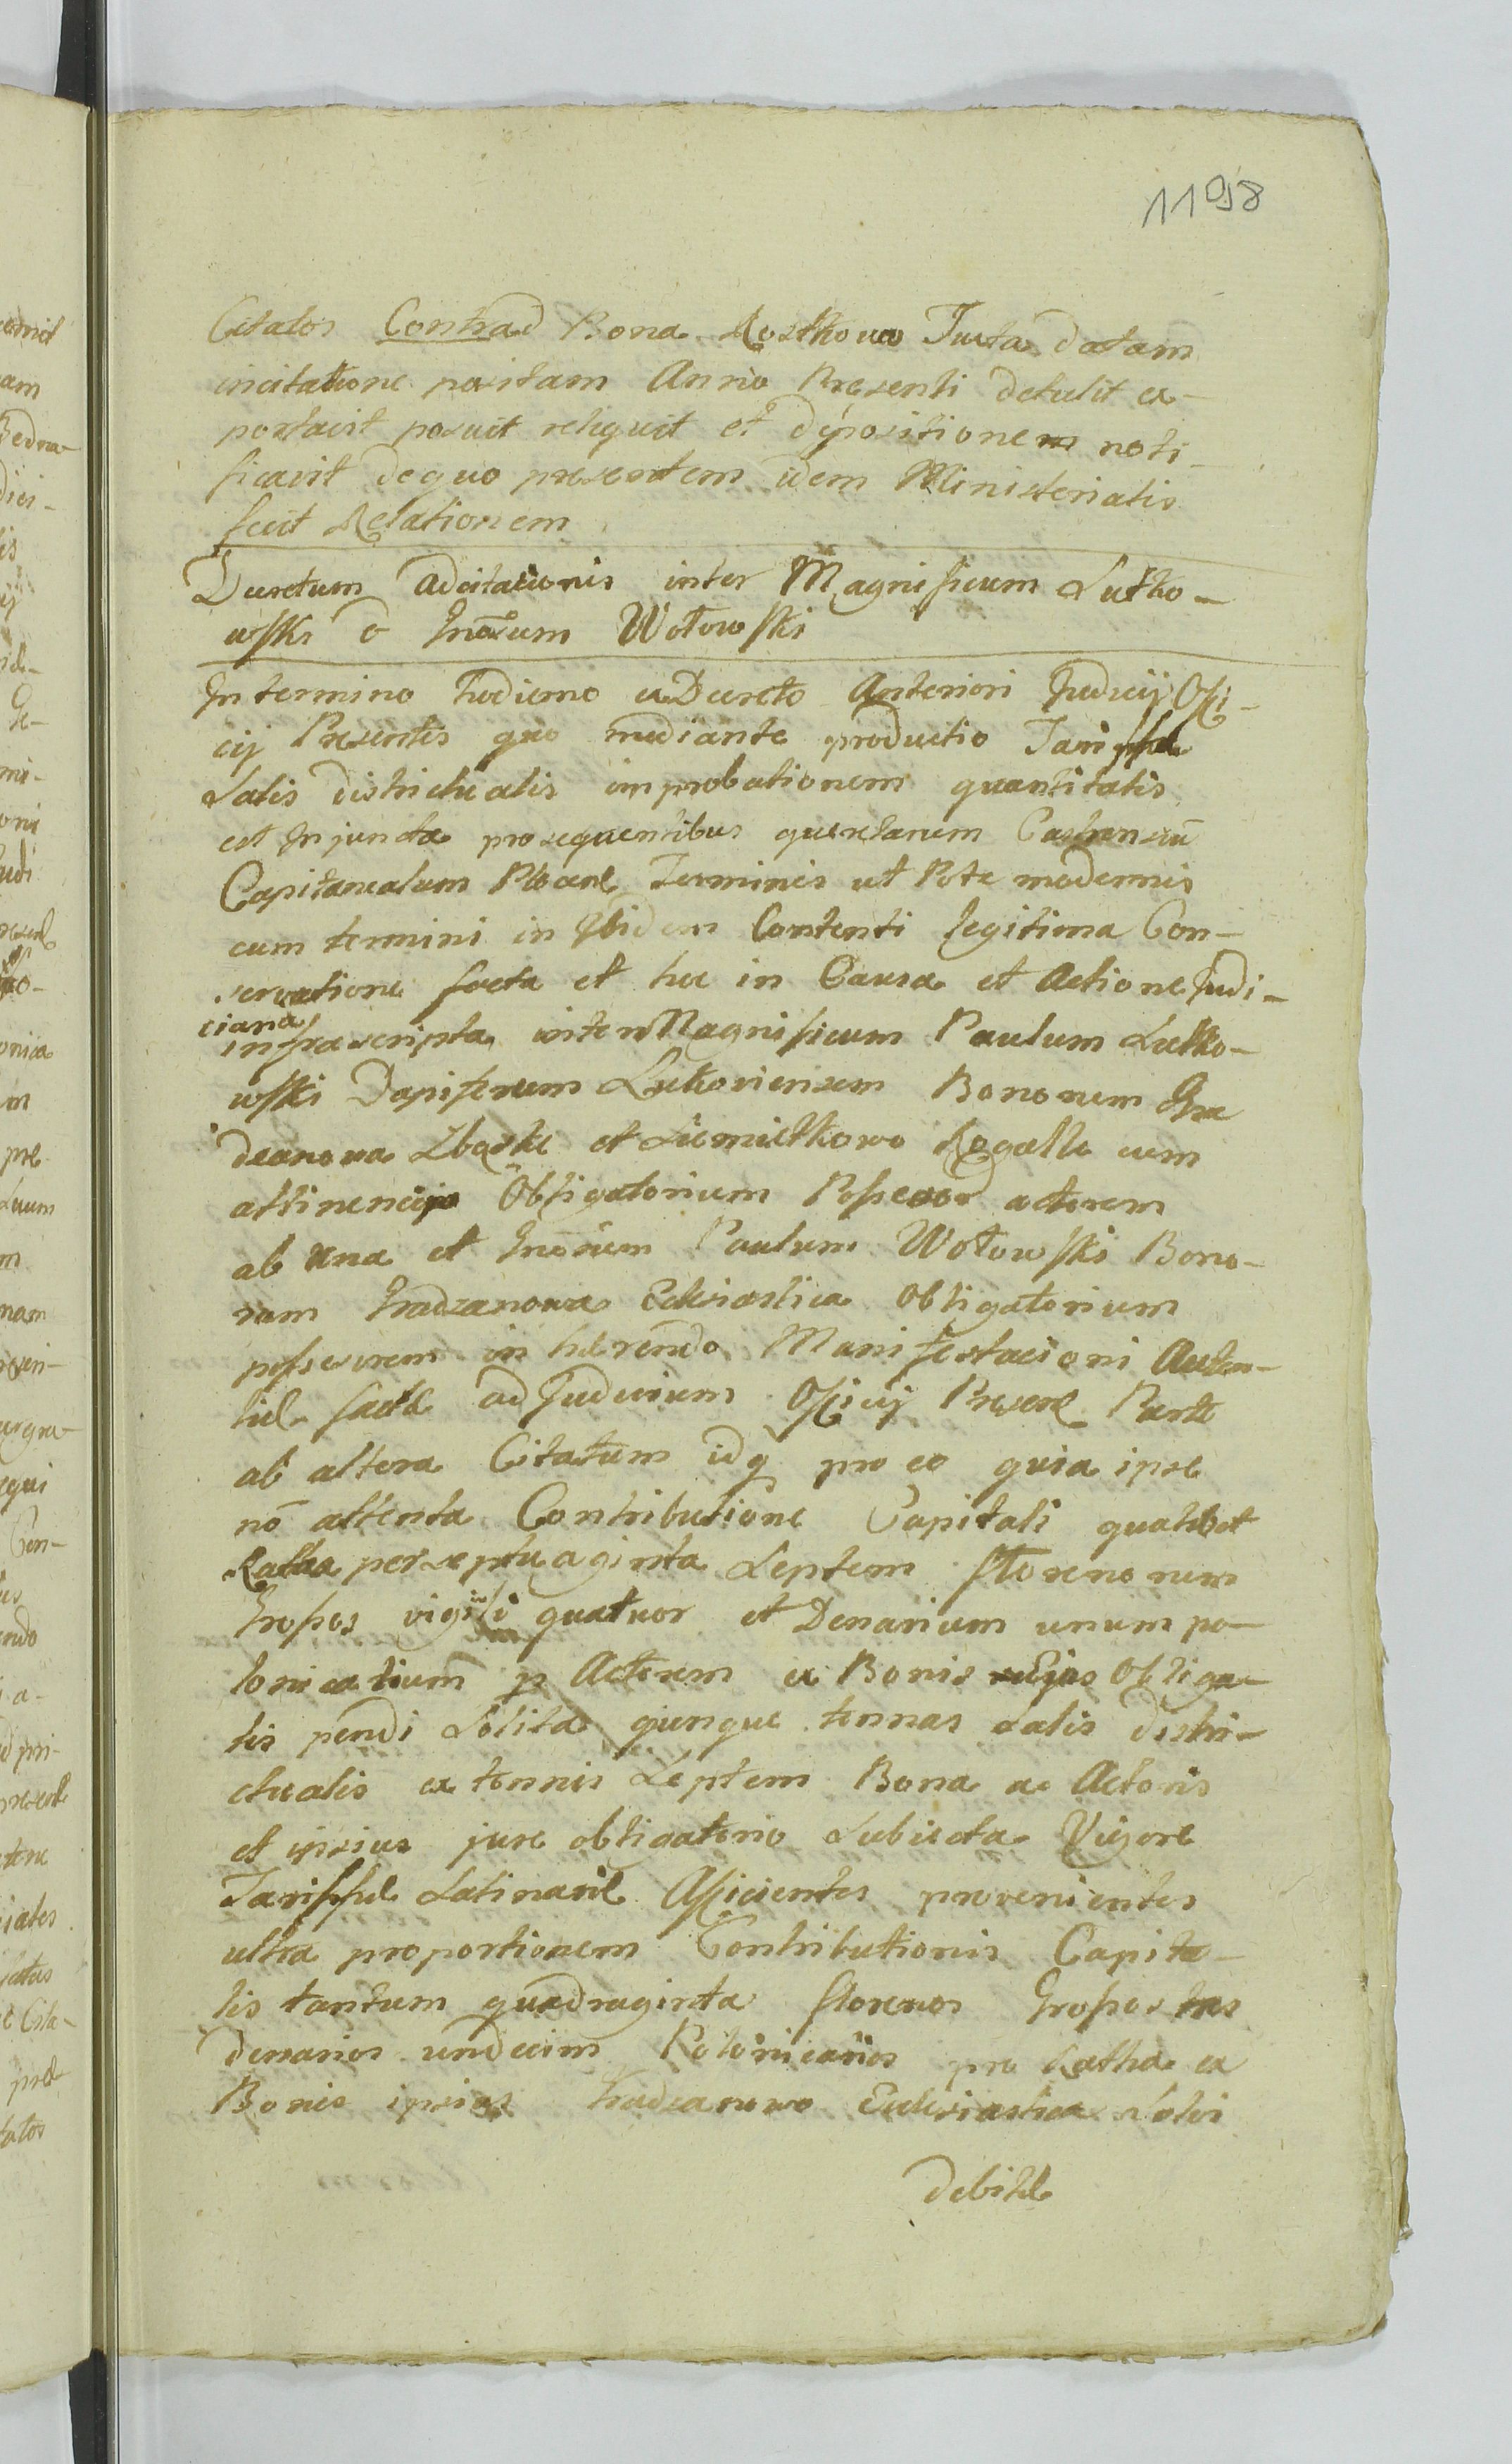 1198
Citatos Contrad Bona Rostkowo Iuxta datam
incitatione positam Anno Presenti detulit ex-
portavit posuit reliquit et depositionem noti-
ficavit de quo presentem idem Ministerialis
fecit Relationem
Decretum adcitationis inter Magnificum Lutko-
wski & Gnosum Wołowski
In termino hodierno ex Decreto Anteriori Judicij Offi-
cij Presentis quo mediante productio Tariffæ
Salis districtualis improbationem quantitatis
est Injuncta prosequentibus querelarum Castrensiu
Capitanealum Termines ut Pote modernis
cum termini in Ibidem Contenti legitima Con-
servatione facta et hac in Causa et Actione Judi-
ciaria
infrascripta inter Magnificum Paulum Lutko-
wski Dapiferum Bonorum Gra
deanowa Zbąskie et Siemiełkowo Rogalle cum
attinencijs Obligatorium Possesor actorem
ab una et Gnosum Paulum Wołowski Bono-
rum Gradzanowa Eclesiastica Obligatorium
possesorem in hærendo Manifestacioni Auten-
ticæ factæ ad Judicium Officij Presen Parte
ab altera Citatum idq pro eo quia ipse
nō attenta Contributione Capitali qualibet
Ratha per septuaginta Septem florenorum
Grossos viginti quatuor et Denarium unum po-
lonicalium p Actorem ex Bonis Obliga-
tis pendi Solita quinque tonnas Salis distri-
ctualis ex tonnis Septem Bona ac Actoris
et ipsius jure obligatorio Subiecta Vigore
Tariffæ Salinariæ Afficientes provenientes
ultra proportionem Contributionis Capita-
lis tantum quadraginta florenos Grossos tres
denarios undecim Polonicalios pro Ratha ex
Bonis ipsius Gradzanowo Eclesiastica Solvi
debitæ